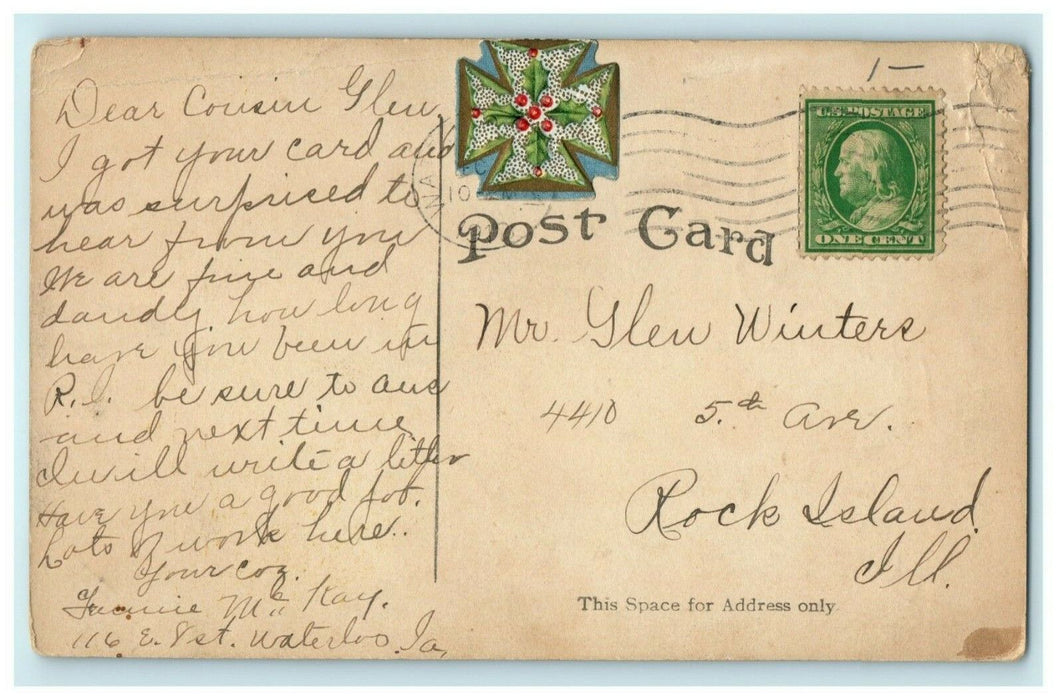 Dear Cousin Glen,
I got your card and
was surprised to
hear from you
We are fine and
dandy, how long
have you been in
R.I. be sure to ans
and next time
I will write a letter
Have you a good job.
Lots of work here.
Your coz.
Mc Kay.
116 E. 8 st. Waterloo Ia,
1-
U.S. POSTAGE
ONE CENT
10
Post Card
Mr. Glen Winters
4410 5.th Ave.
Rock Island
Ill.
This Space for Address only.